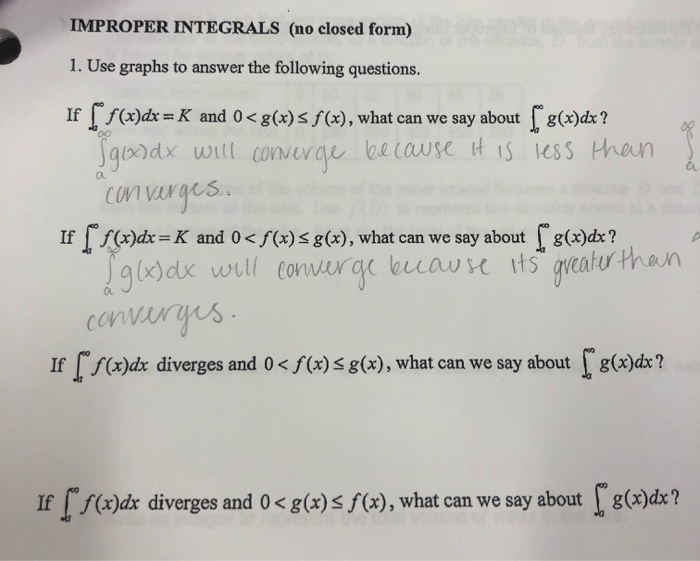 IMPROPER INTEGRALS (no closed form)
1. Use graphs to answer the following questions.
If ∫ₐ^∞ f(x)dx = K and 0 < g(x) ≤ f(x), what can we say about ∫ₐ^∞ g(x)dx?
∫ₐ^∞ g(x)dx will converge because it is less than ∫ₐ^∞
converges.
If ∫ₐ^∞ f(x)dx = K and 0 < f(x) ≤ g(x), what can we say about ∫ₐ^∞ g(x)dx?
∫ₐ^∞ g(x)dx will converge because its greater than
converges.
If ∫ₐ^∞ f(x)dx diverges and 0 < f(x) ≤ g(x), what can we say about ∫ₐ^∞ g(x)dx?
If ∫ₐ^∞ f(x)dx diverges and 0 < g(x) ≤ f(x), what can we say about ∫ₐ^∞ g(x)dx?